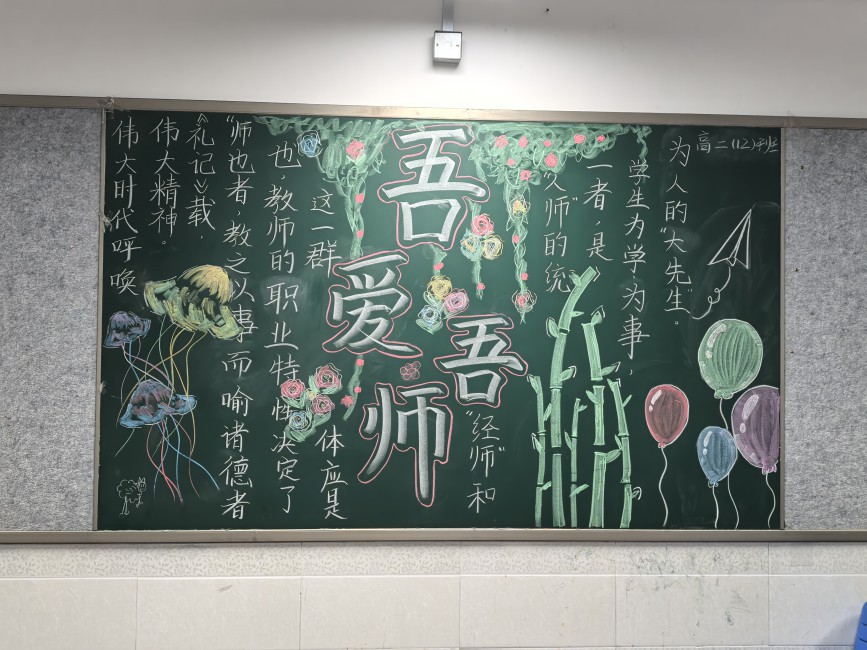 伟大时代呼唤
伟大精神。
《礼记》载,
“师也者,教之以事而喻诸德者
也,教师的职业特性决定了
这一群
体应是
吾爱吾师
“经师”和
人师”的统
一者,是
学生为学、为事、
为人的“大先生”。
高二(12)班